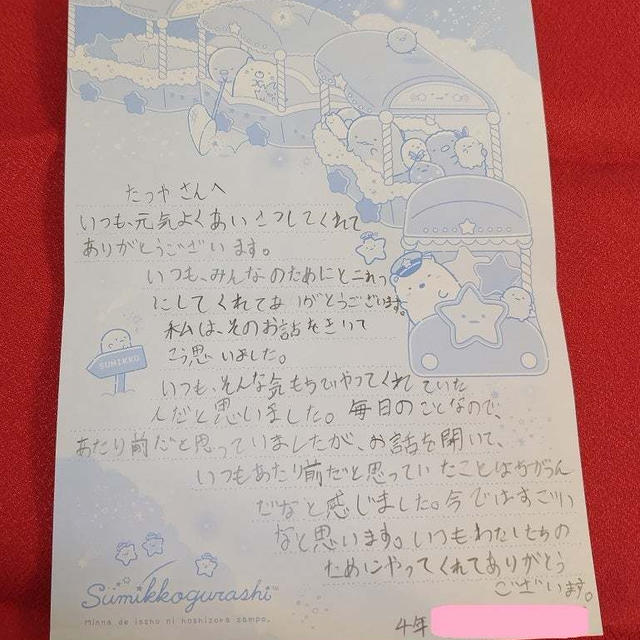 たつやさんへ
いつも、元気よくあいさつしてくれて
ありがとうございます。
いつも、みんなのために
にしてくれてありがとうございます。
私は、そのお話をきいて
こう思いました。
いつも、そんな気もちでやってくれていた
んだと思いました。毎日のことなので、
あたり前だと思っていましたが、お話を聞いて、
いつもあたり前だと思っていたことはちがうん
だなと感じました。今ではすごい
なと思います。いつもわたしたちの
ためにやってくれてありがとう
ございます。
4年
SUMIKKO
Sumikkogurashi™
Minna de issho ni hoshizora sampo.